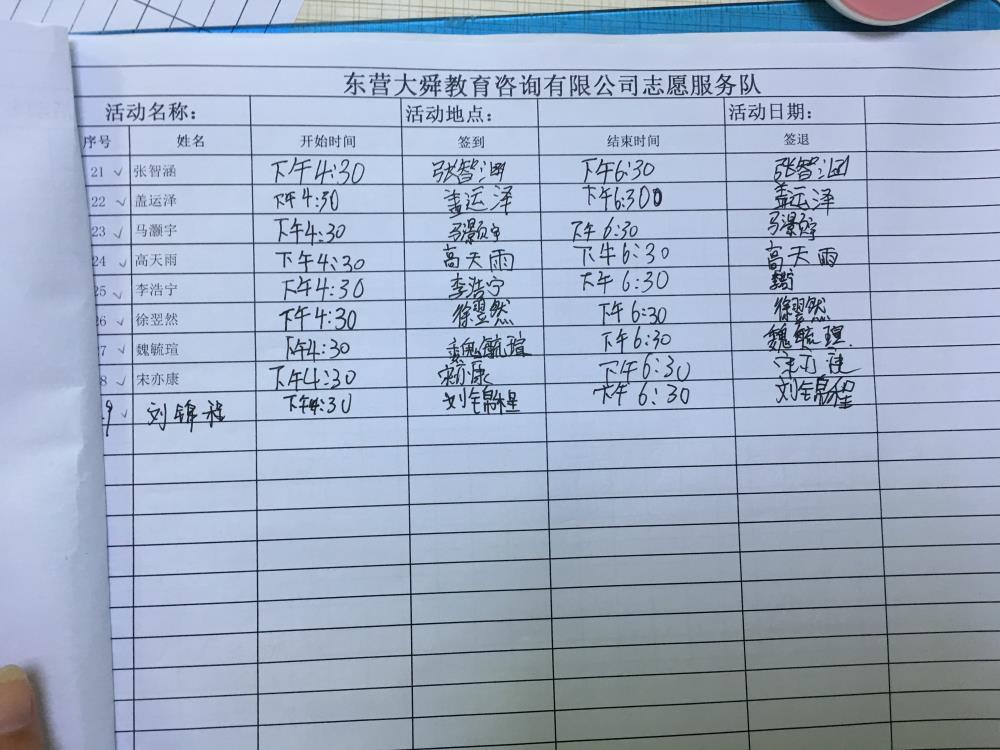 东营大舜教育咨询有限公司志愿服务队
活动名称： 活动地点： 活动日期：
序号 姓名 开始时间 签到 结束时间 签退
21 ✓ 张智涵 下午4:30 张智涵 下午6:30 张智涵
22 ✓ 盖运泽 下午4:30 盖运泽 下午6:300 盖运泽
23 ✓ 马灏宇 下午4:30 马灏宇 下午6:30 马灏宇
24 ✓ 高天雨 下午4:30 高天雨 下午6:30 高天雨
25 ✓ 李浩宁 下午4:30 李浩宁 下午6:30
26 ✓ 徐翌然 下午4:30 徐翌然 下午6:30 徐翌然
7 ✓ 魏毓瑄 下午4:30 魏毓瑄 下午6:30 魏毓瑄.
8 ✓ 宋亦康 下午4:30 宋亦康 下午6:30 宋亦康
9 ✓ 刘锦程 下午4:30 刘锦程 下午6:30 刘锦程